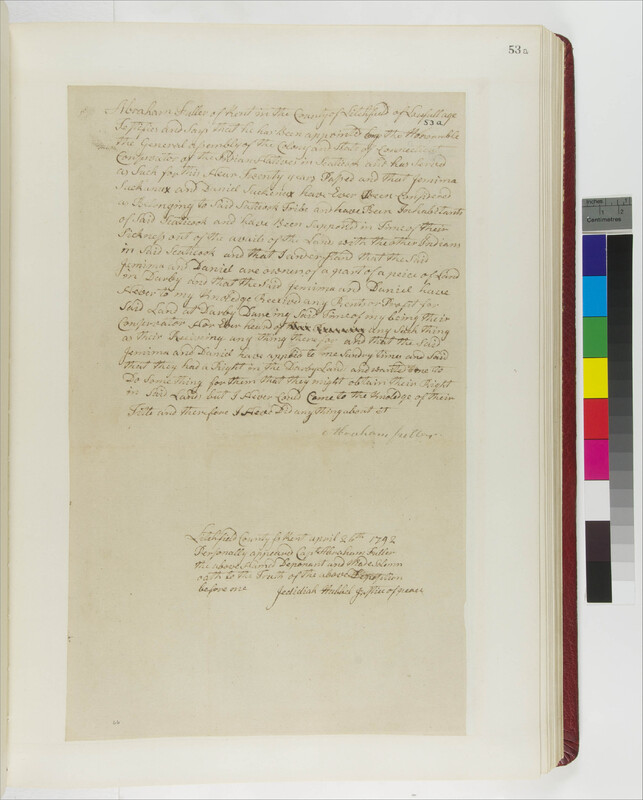 53a
Abraham Fuller of Kent in the County of Litchfield of Lawfull age
53a
Testifies and Says that he has Been appointed by the Honourable
the General Assembly of the Colony and State of Connecticut
Conservator of the Indian Natives in Scaticook and has Served
as Such for this Near Twenty years Passed and that Jemima
Suckanux and Daniel Suckanux have Ever Been Considered
as Belonging to Said Scaticook Tribe and have Been Inhabitants
of Said Scaticook and have Been Supported in Time of their
Sickness out of the avails of the Land with the other Indians
in Said Scaticook and that I understand that the Said
Jemima and Daniel are owners of a part of a peice of Land
in Darby and that the Said Jemima and Daniel have
Never to my Knoledge Received any Rent or Profit for
Said Land at Darby Dureing Said Time of my being their
Conservator Nor Ever heard of any Such thing
as their Receiving any thing therefor and that the Said
Jemima and Daniel have applied to me Sundry times and Said
that they had a Right in the Darby Land and wanted me to
Do Something for them that they might obtain their Right
in Said Lands but I Never Could Come to the Knoledge of their
Title and therefore I Never Did any thing about it
Abraham Fuller
Litchfield County ss Kent april 26th 1792
Personally appeared Capt Abraham Fuller
the above Named Deponent and Made Solemn
oath to the Truth of the above Deposition
before me Jedidiah Hubbel Justice of peace
Inches
Centimetres